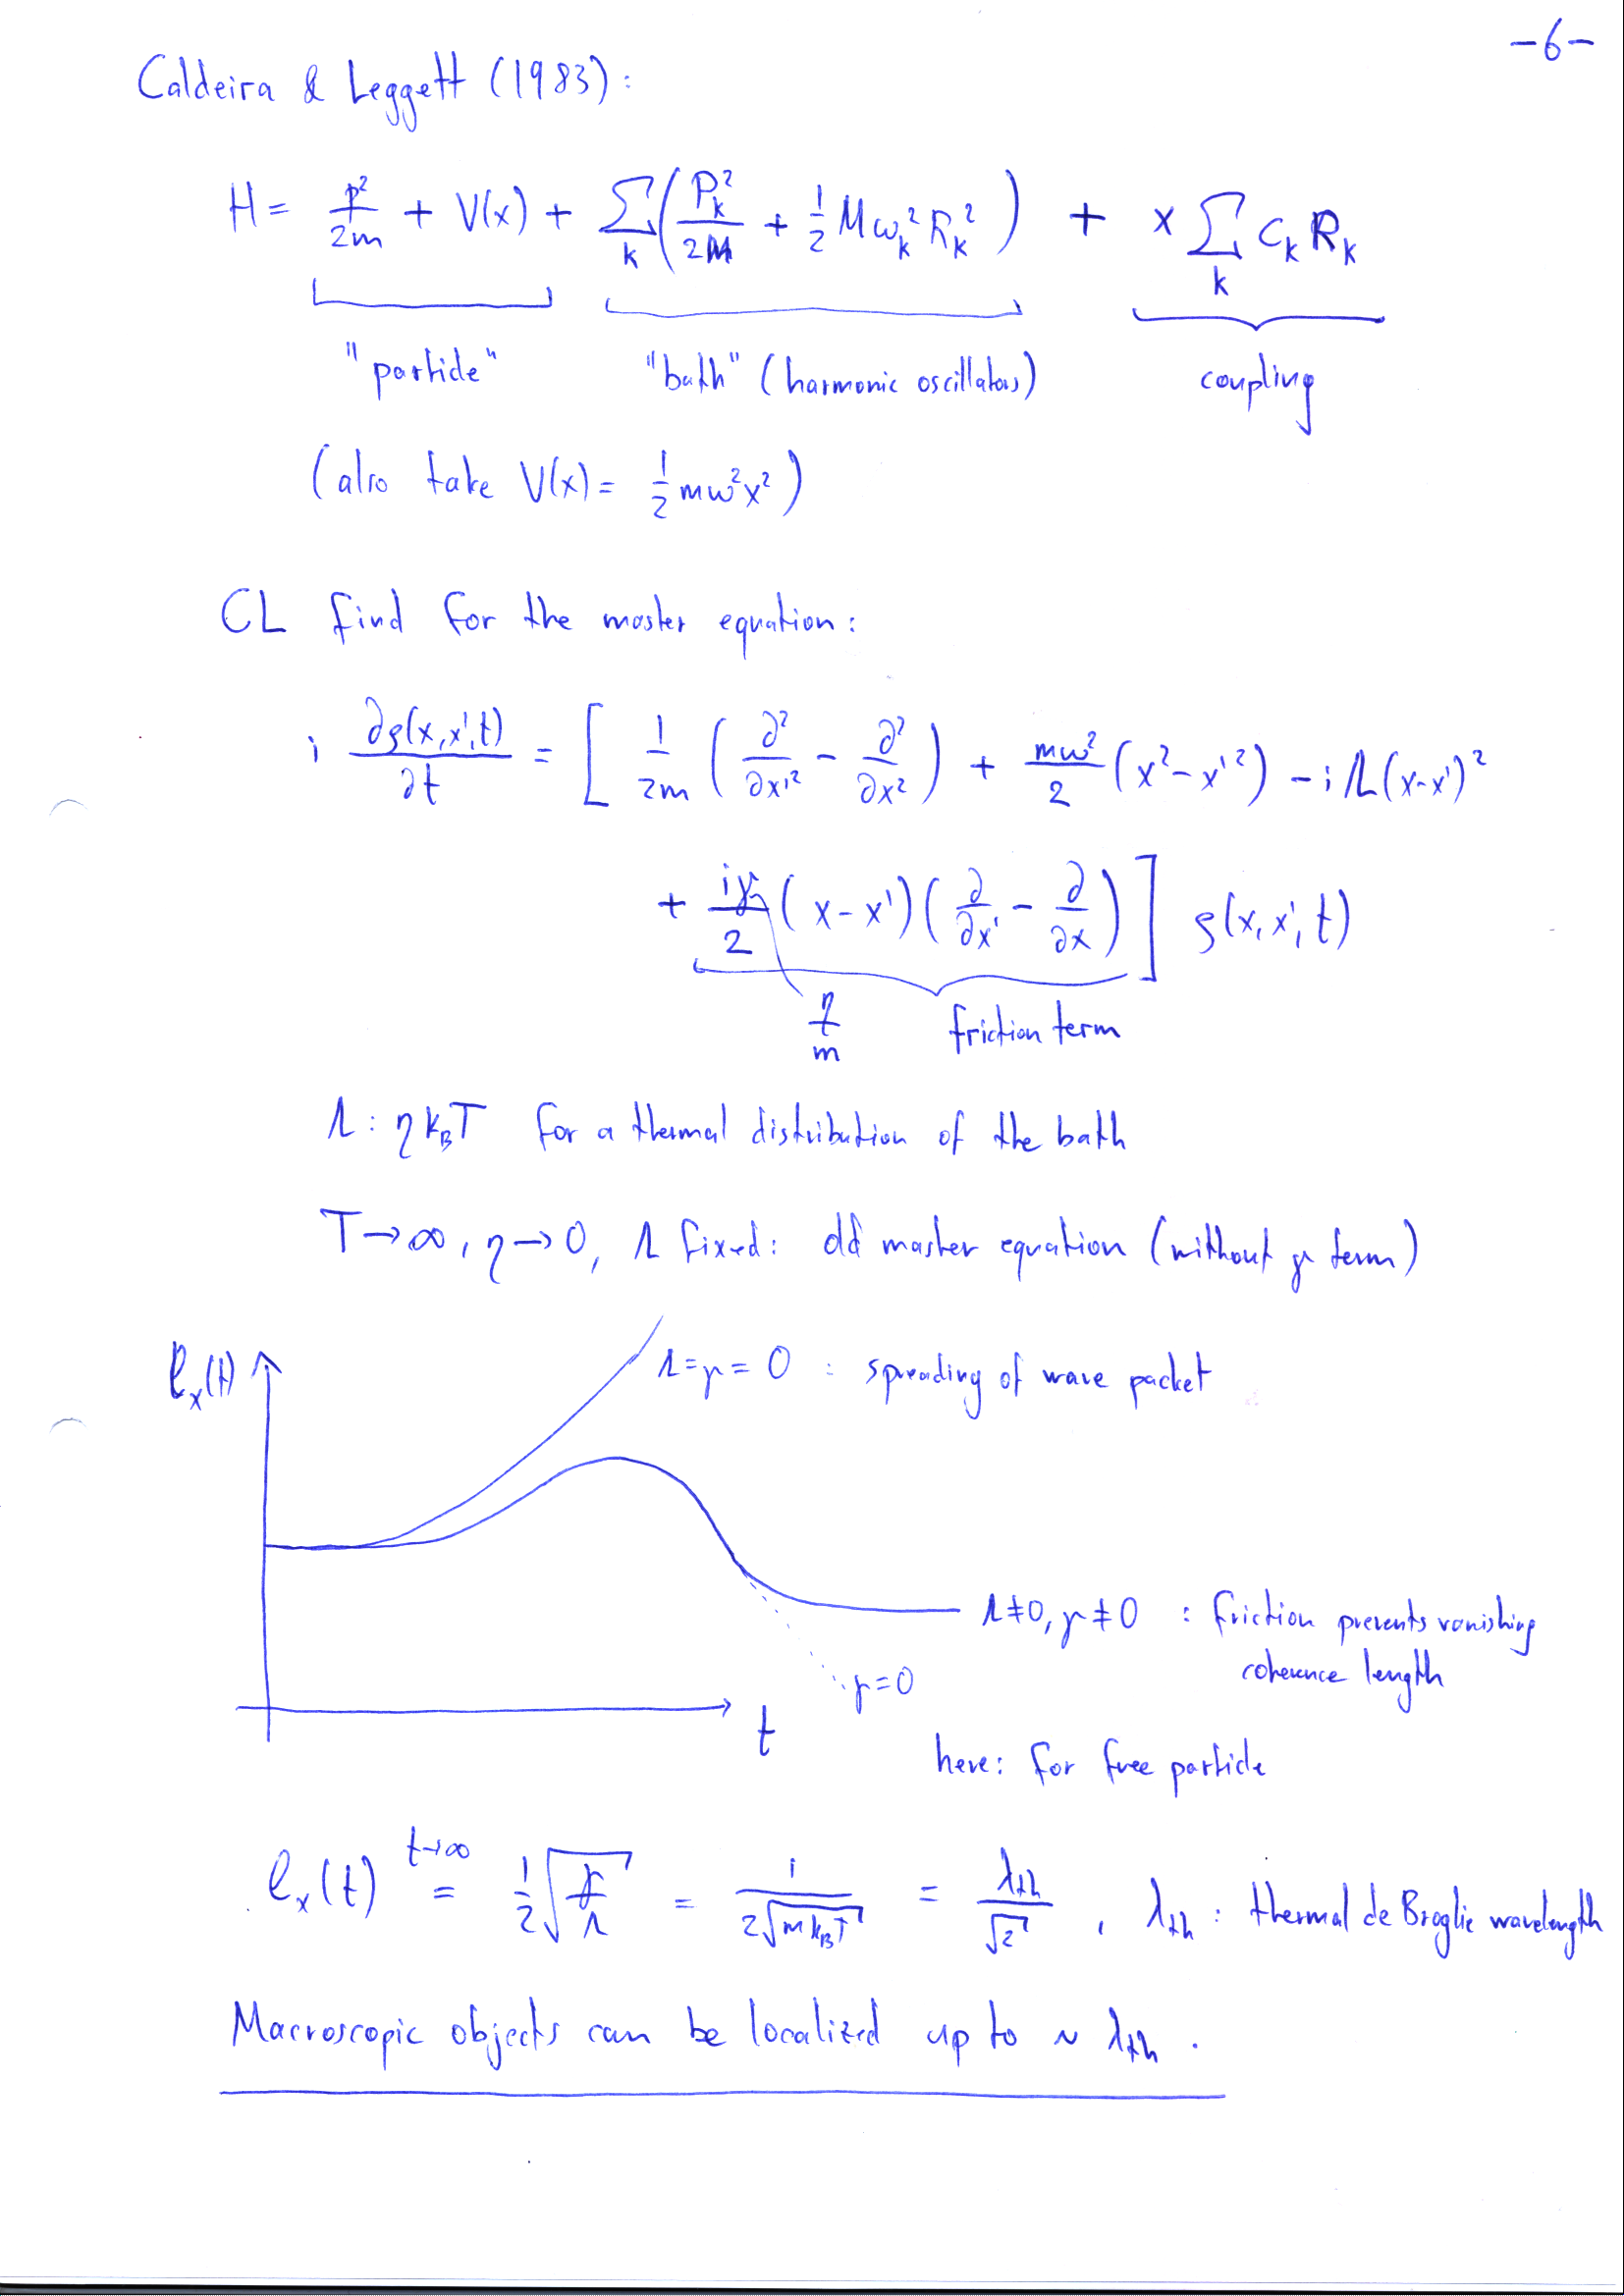 -6-
Caldeira & Leggett (1983):
H = p²/2m + V(x) + ∑_k (P_k²/2M + ½ M ω_k² R_k²) + x ∑_k c_k R_k
"particle" "bath" (harmonic oscillators) coupling
(also take V(x) = ½ mω²x²)
CL find for the master equation:
i ∂ρ(x,x',t)/∂t = [ 1/2m (∂²/∂x'² − ∂²/∂x²) + mω²/2 (x² − x'²) − iΛ(x-x')²
+ iγ/2 (x-x')(∂/∂x' − ∂/∂x) ] ρ(x,x',t)
η/m friction term
Λ : η k_B T for a thermal distribution of the bath
T→∞, η→0, Λ fixed: old master equation (without γ term)
ℓ_x(t)
Λ=γ=0 : spreading of wave packet
Λ≠0, γ≠0 : friction prevents vanishing
coherence length
γ=0
t
here: for free particle
ℓ_x(t) t→∞ = ½ √(γ/Λ) = 1/(2√(m k_B T)) = λ_th/√2 , λ_th : thermal de Broglie wavelength
Macroscopic objects can be localized up to ~ λ_th .